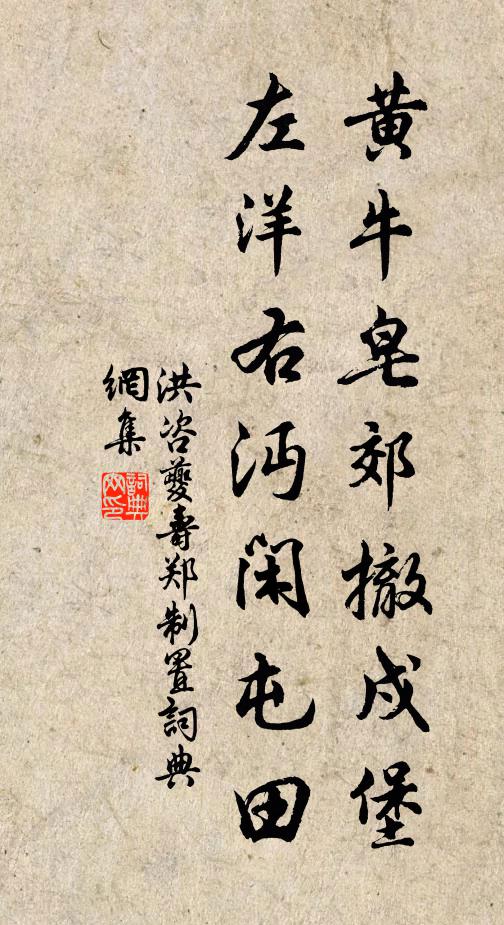 黄牛皂郊撤戍堡
左洋右沔闲屯田
洪咨夔寿郑制置詞典
網集
詞典
网印